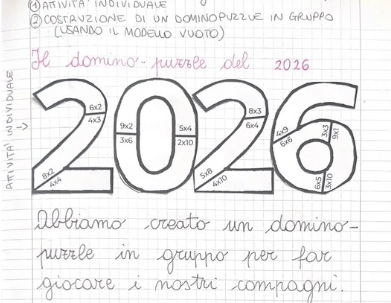 ① ATTIVITÀ INDIVIDUALE
② COSTRUZIONE DI UN DOMINOPUZZLE IN GRUPPO
(USANDO IL MODELLO VUOTO)
Il domino-puzzle del 2026
ATTIVITÀ INDIVIDUALE →
2026
6x2
4x3
8x2
4x4
9x2
3x6
5x4
2x10
8x3
6x4
5x8
4x10
4x9
6x6
3x3
9x1
6x5
3x10
Abbiamo creato un domino-
puzzle in gruppo per far
giocare i nostri compagni.